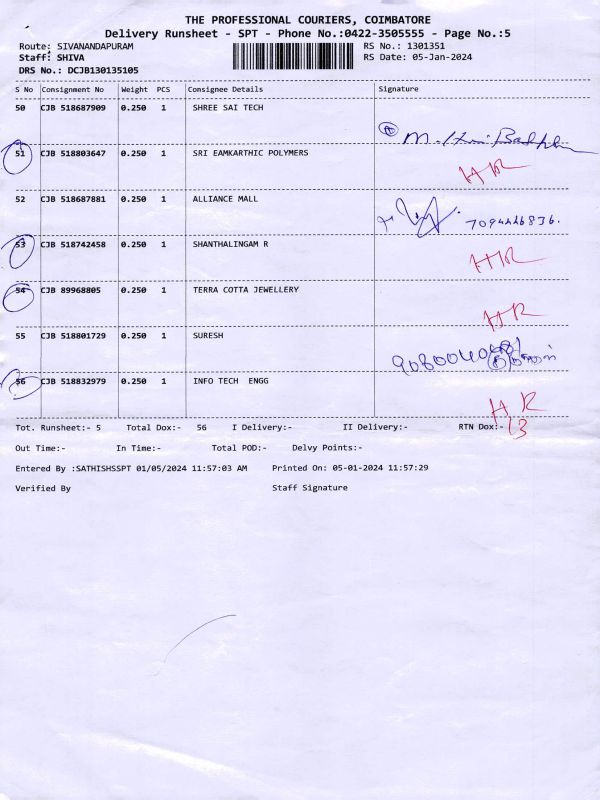 THE PROFESSIONAL COURIERS, COIMBATORE
Delivery Runsheet - SPT - Phone No.:0422-3505555 - Page No.:5
Route: SIVANANDAPURAM RS No.: 1301351
Staff: SHIVA RS Date: 05-Jan-2024
DRS No.: DCJB130135105
S No Consignment No Weight PCS Consignee Details Signature
50 CJB 518687909 0.250 1 SHREE SAI TECH
51 CJB 518803647 0.250 1 SRI EAMKARTHIC POLYMERS HR
52 CJB 518687881 0.250 1 ALLIANCE MALL
53 CJB 518742458 0.250 1 SHANTHALINGAM R HR
54 CJB 89968805 0.250 1 TERRA COTTA JEWELLERY HR
55 CJB 518801729 0.250 1 SURESH
56 CJB 518832979 0.250 1 INFO TECH ENGG HR
Tot. Runsheet:- 5 Total Dox:- 56 I Delivery:- II Delivery:- RTN Dox:- 13
Out Time:- In Time:- Total POD:- Delvy Points:-
Entered By :SATHISHSSPT 01/05/2024 11:57:03 AM Printed On: 05-01-2024 11:57:29
Verified By Staff Signature